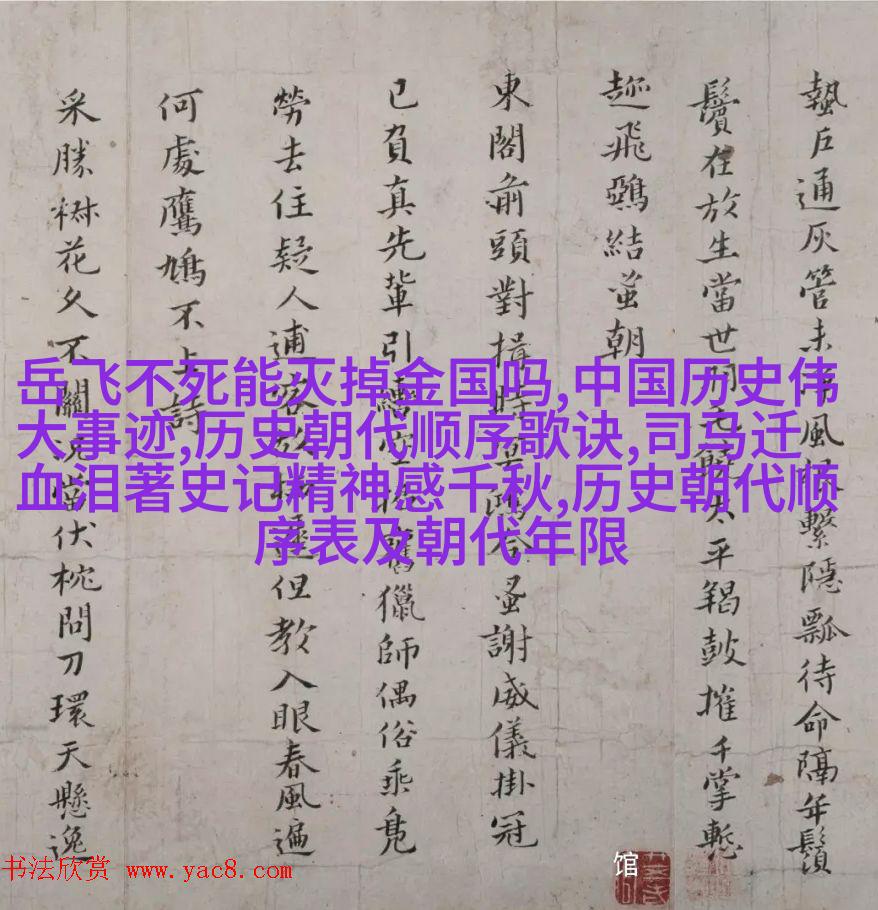 蟄戶通灰管未風繫隱瓢待命隔年鬚
鬢在放生當世太平羯鼓摧千掌慙
趂飛鴉結蚤朝
東閣前頭對揖時蚤謝威儀掛冠
已負真先輩引空舊獵師偶俗乘鳧
勞去住疑人但教入眼春風遍
何處鷹鳩不上詩
采勝樹花久不關況當伏枕問刀環天懸逸
岳飞不死能灭掉金国吗,中国历史伟
大事迹,历史朝代顺序歌诀,司马迁
血泪著史记精神感千秋,历史朝代顺
序表及朝代年限
书法欣赏 www.yac8.com
馆